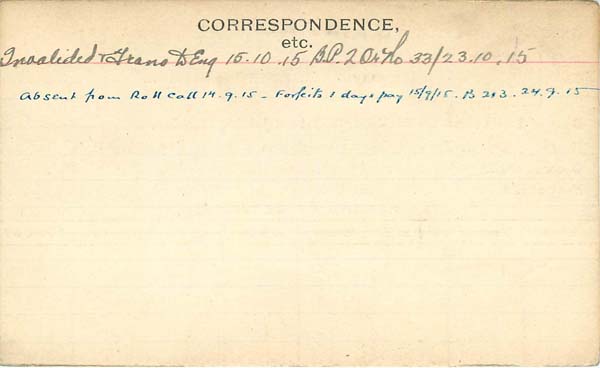 CORRESPONDENCE,
etc.
Invalided & Trans to Eng 15.10.15 B.P. 2 O. No 33/23.10.15
Absent from Roll Call 14.9.15 - Forfeits 1 days pay 15/9/15. B 213. 24.9.15